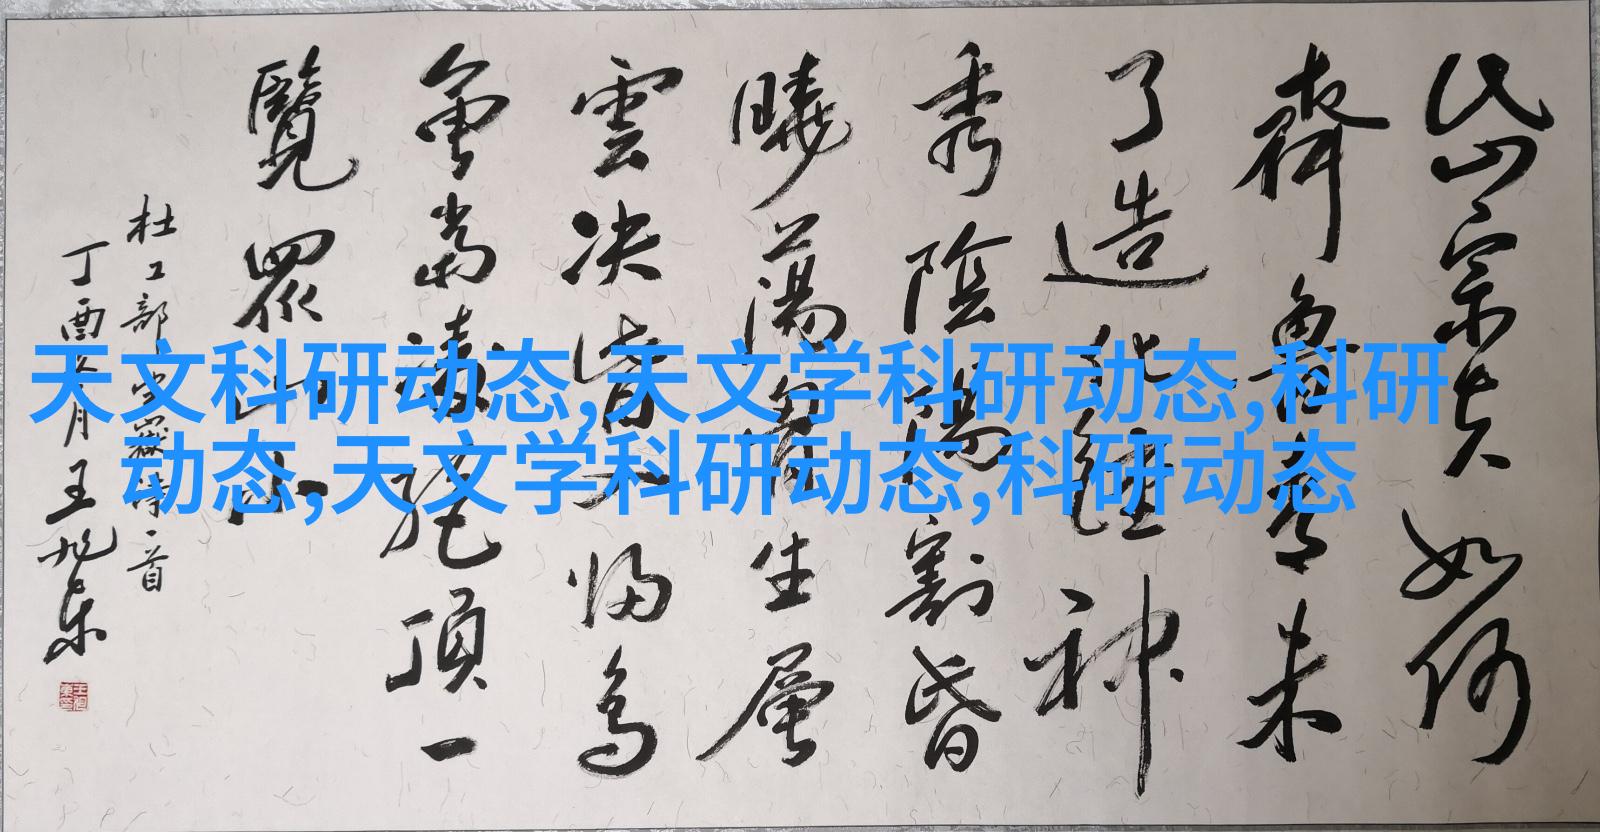 岱宗夫如何
齊魯青未
了造化鍾神
秀陰陽割昏
曉蕩胸生層
雲决眥入歸鳥
會當凌絕頂一
覽眾山小
杜工部望嶽詩一首
丁酉月王旭东
天文科研动态,天文学科研动态,科研
动态,天文学科研动态,科研动态